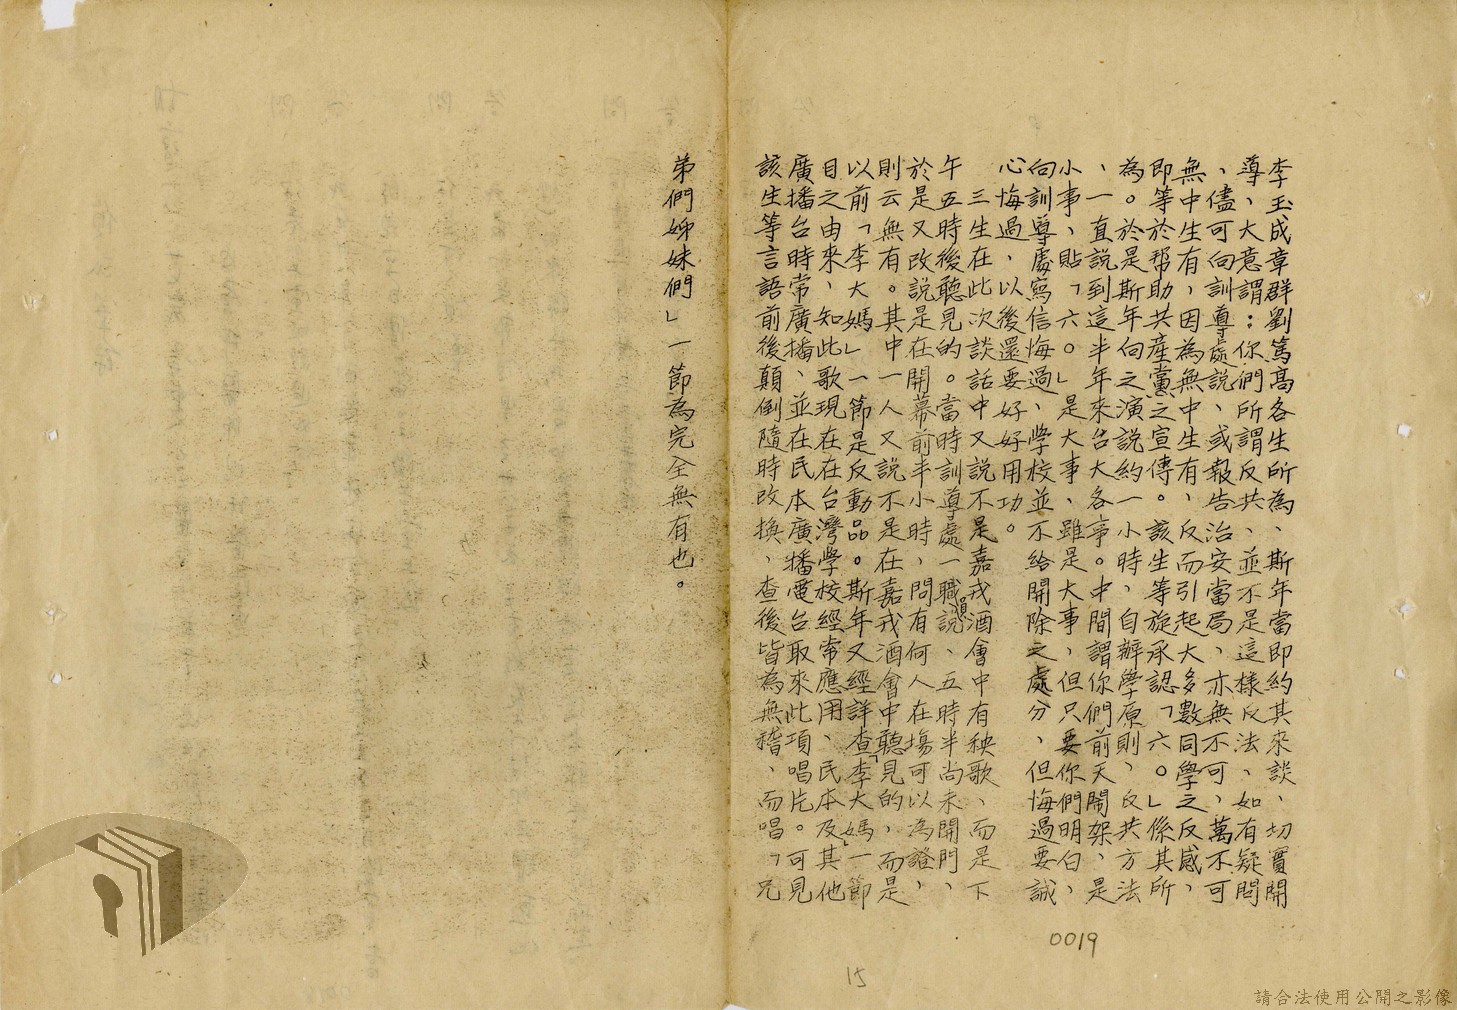 李玉成章群劉篤高各生所為、斯年當即約其來談、切實開
導、大意謂：你們所謂反共、並不是這樣反法、如有疑問
、儘可向訓導處說、或報告治安當局、亦無不可，萬不可
無中生有，因為無中生有、反而引起大多數同學之反感，
即等於帮助共產黨之宣傳。該生等旋承認「六。」係其所
為。於是斯年向之演說約一小時，自辦學原則、反共方法
、一直說到這半年來台大各事。中間謂你們前天鬧架，是
小事，貼「六。」是大事，雖是大事，但只要你們明白，
向訓導處寫信悔過、學校並不給開除之處分、但悔過要誠
心悔過，以後還要好好用功。
三生在此次談話中又說不是嘉戎酒會中有秧歌、而是下
午五時後聽見的。當時訓導處一職員說、五時半尚未開門、
於是又改說是在開幕前半小時，問有何人在場可以為證，
則云無有。其中一人又說不是在嘉戎酒會中聽見的，而是
以前「李大媽」一節是反動品。斯年又經詳查「李大媽」一節
目之由來，知此歌現在在台灣學校經常應用、民本及其他
廣播台時常廣播、並在民本廣播電台取來此項唱片。可見
該生等言語前後顛倒隨時改換、查後皆為無稽、而唱「兄
弟們姊妹們」一節為完全無有也。
0019
15
請合法使用公開之影像